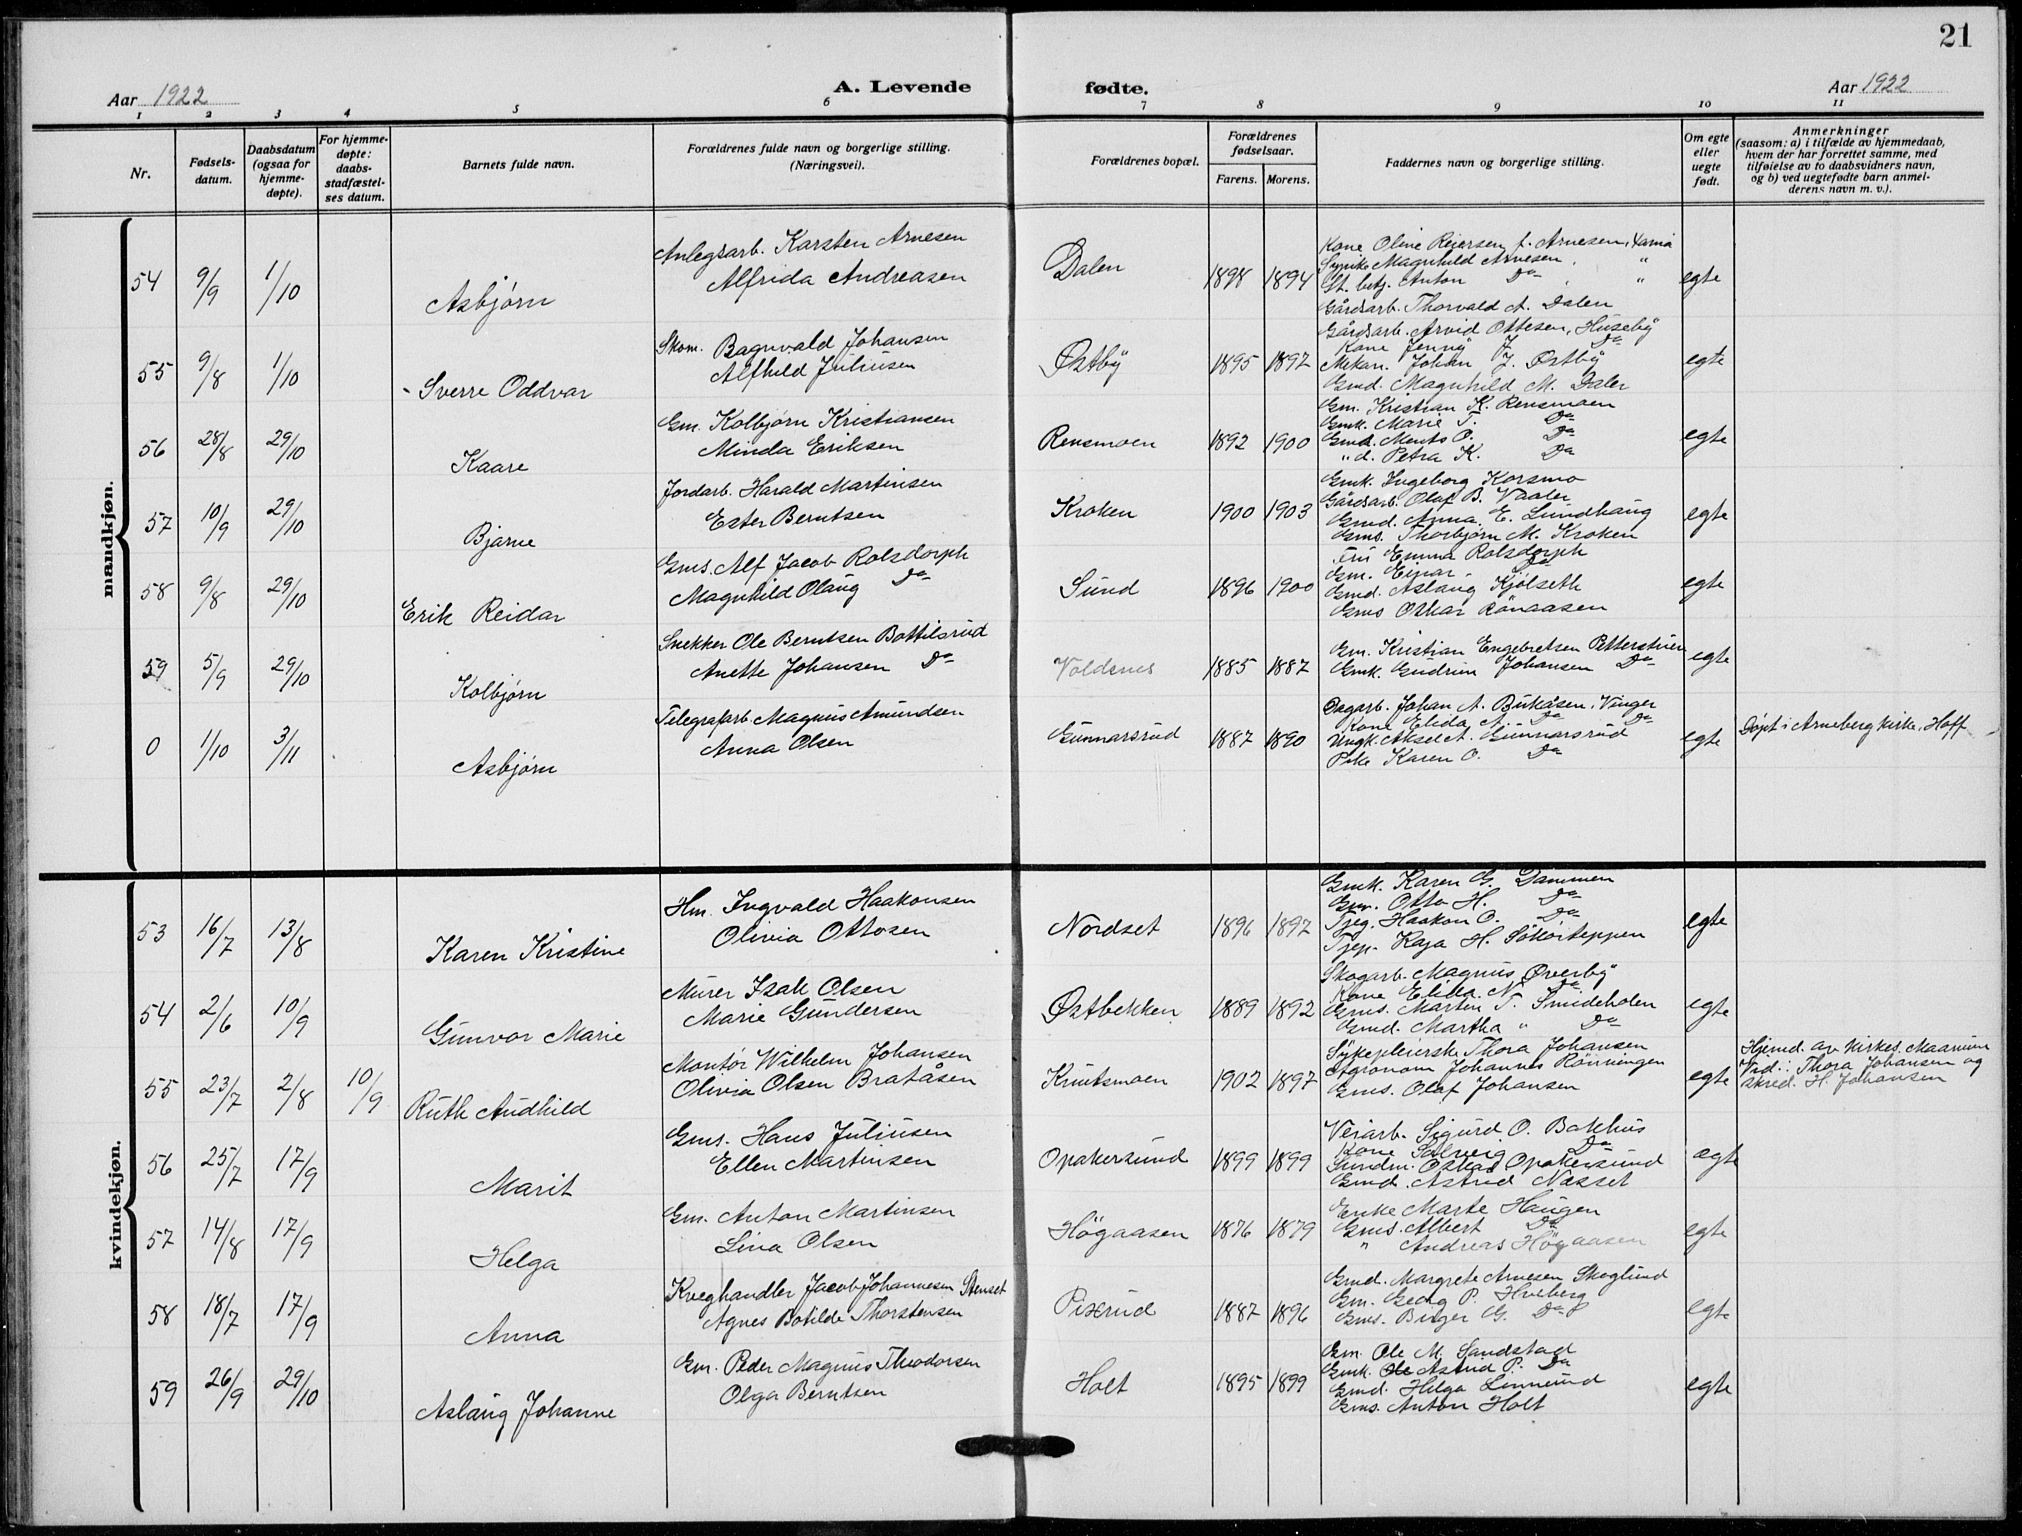 21
Aar 1922
A. Levende fødte.
Aar 1922
1 2 3 4 5 6 7 8 9 10 11
Nr.
Fødsels-
datum.
Daabsdatum
(ogsaa for
hjemme-
døpte).
For hjemme-
døpte:
daabs-
stadfæstel-
ses datum.
Barnets fulde navn.
Forældrenes fulde navn og borgerlige stilling.
(Næringsvei).
Forældrenes bopæl.
Forældrenes
fødselsaar.
Farens. Morens.
Faddernes navn og borgerlige stilling.
Om egte
eller
uegte
født.
Anmerkninger
(saasom: a) i tilfælde av hjemmedaab,
hvem der har forrettet samme, med
tilføielse av to daabsvidners navn,
og b) ved uegtefødte barn anmel-
derens navn m. v.).
mandkjøn.
54 9/9 1/10 Asbjørn
Anlegsarb. Karsten Arnesen
Alfrida Andreasen
Dalen 1898 1894
Kone Oline Reiersen f. Arnesen,
Magnhild Arnesen, "
St. betj. Anton Do "
Gårdsarb. Thorvald A. Dalen
egte
55 9/8 1/10 Sverre Oddvar
Skom. Bagnvald Johansen
Alfhild Juliusen
Østby 1895 1897
Gårdsarb. Arvid Ottesen, Huseby
Kone Jenny Do
Mekan. Johan J. Østby
Gmd. Magnhild M. Daler
egte
56 28/8 29/10 Kaare
Gm. Kolbjørn Kristiansen
Minda Eriksen
Rensmoen 1892 1900
Gm. Kristian K. Rensmoen
Gmk. Marie T. Do
Gmd. O. Do
"d. Petra K. Do
egte
57 10/9 29/10 Bjarne
Jordarb. Harald Martinsen
Ester Berntsen
Kroken 1900 1903
Gmk. Ingeborg Korsmo
Gårdsarb. Olaf B. Vaaler
Gmd. Anna E. Lundhaug
Gms. Thorbjørn M. Kroken
egte
58 9/8 29/10 Erik Reidar
Gms. Alf Jacob Rolsdorph
Magnhild Olaug Do
Sund 1896 1900
Fru Emma Rolsdorph
Gm. Einar Do
Gmd. Aslaug Kjølseth
Gms Oskar Rönaasen
egte
59 5/9 29/10 Kolbjørn
Snekker Ole Berntsen Bottilsrud
Anette Johansen Do
Voldsnes 1885 1887
Gm. Kristian Engebretsen Petterstuen
Gmk. Gudrun Johansen Do
egte
0 1/10 3/11 Asbjørn
Telegrafarb. Magnus Amundsen
Anna Olsen
Gunnarsrud 1887 1890
Dagarb. Johan A. Bukåsen, Vinger
Kone Elida A. Do Do
Ungk. Aksel A. Gunnarsrud
Pike Karen O. Do
egte
Døpt i Arneberg kirke, Hoff
kvindekjøn.
53 16/7 13/8 Karen Kristine
Hm. Ingvald Haakonsen
Olivia Ottosen
Nordset 1896 1897
Gmk. Karen G. Dammen
Gm. Otto H. Do
Tjeg. Haakon O. Do
Tjep. Kaja H.
egte
54 2/6 10/9 Gunvor Marie
Murer Isak Olsen
Marie Gundersen
Østbekken 1889 1892
Skogarb. Magnus Øverby
Kone Elida N. Do
Gms. Martin T. Smideholen
Gmd. Martha " Do
egte
55 23/7 2/8 10/9 Ruth Audhild
Montör Wilhelm Johansen
Olivia Olsen Bratåsen
Knutsmoen 1902 1897
Sykepleierske Thora Johansen
Agronom Johannes Rönningen
Gms. Olaf Johansen
egte
Hjemd. av Kirkes. Maarum
Vid.: Thora Johansen og
H. Johansen
56 25/7 17/9 Marit
Gms. Hans Juliusen
Ellen Martinsen
Opakersund 1899 1899
Veiarb. Sigurd O. Bakhus
Kone Solveig Do
Sundm. Oskar Opakersund
Gmd. Astrid Næsset
ægte
57 14/8 17/9 Helga
Gm. Anton Martinsen
Lina Olsen
Högaasen 1876 1879
Enke Marte Haugen
Gms. Albert Do
" Andreas Högaasen
egte
58 18/7 17/9 Anna
Kveghandler Jacob Johannesen Stenset
Agnes Botilde Thorstensen
Pixrud 1887 1896
Gmd. Margrete Arnesen Skoglund
Gm. Georg P. Hveberg
Gms. Birger G. Do
egte
59 26/9 29/10 Aslaug Johanne
Gm. Peder Magnus Theodorsen
Olga Berntsen
Holt 1895 1899
Gm. Ole M. Sandstad
Gmk. Ole Astrid P. Do
Gmd. Helga Linnerud
Gms. Anton Holt
egte